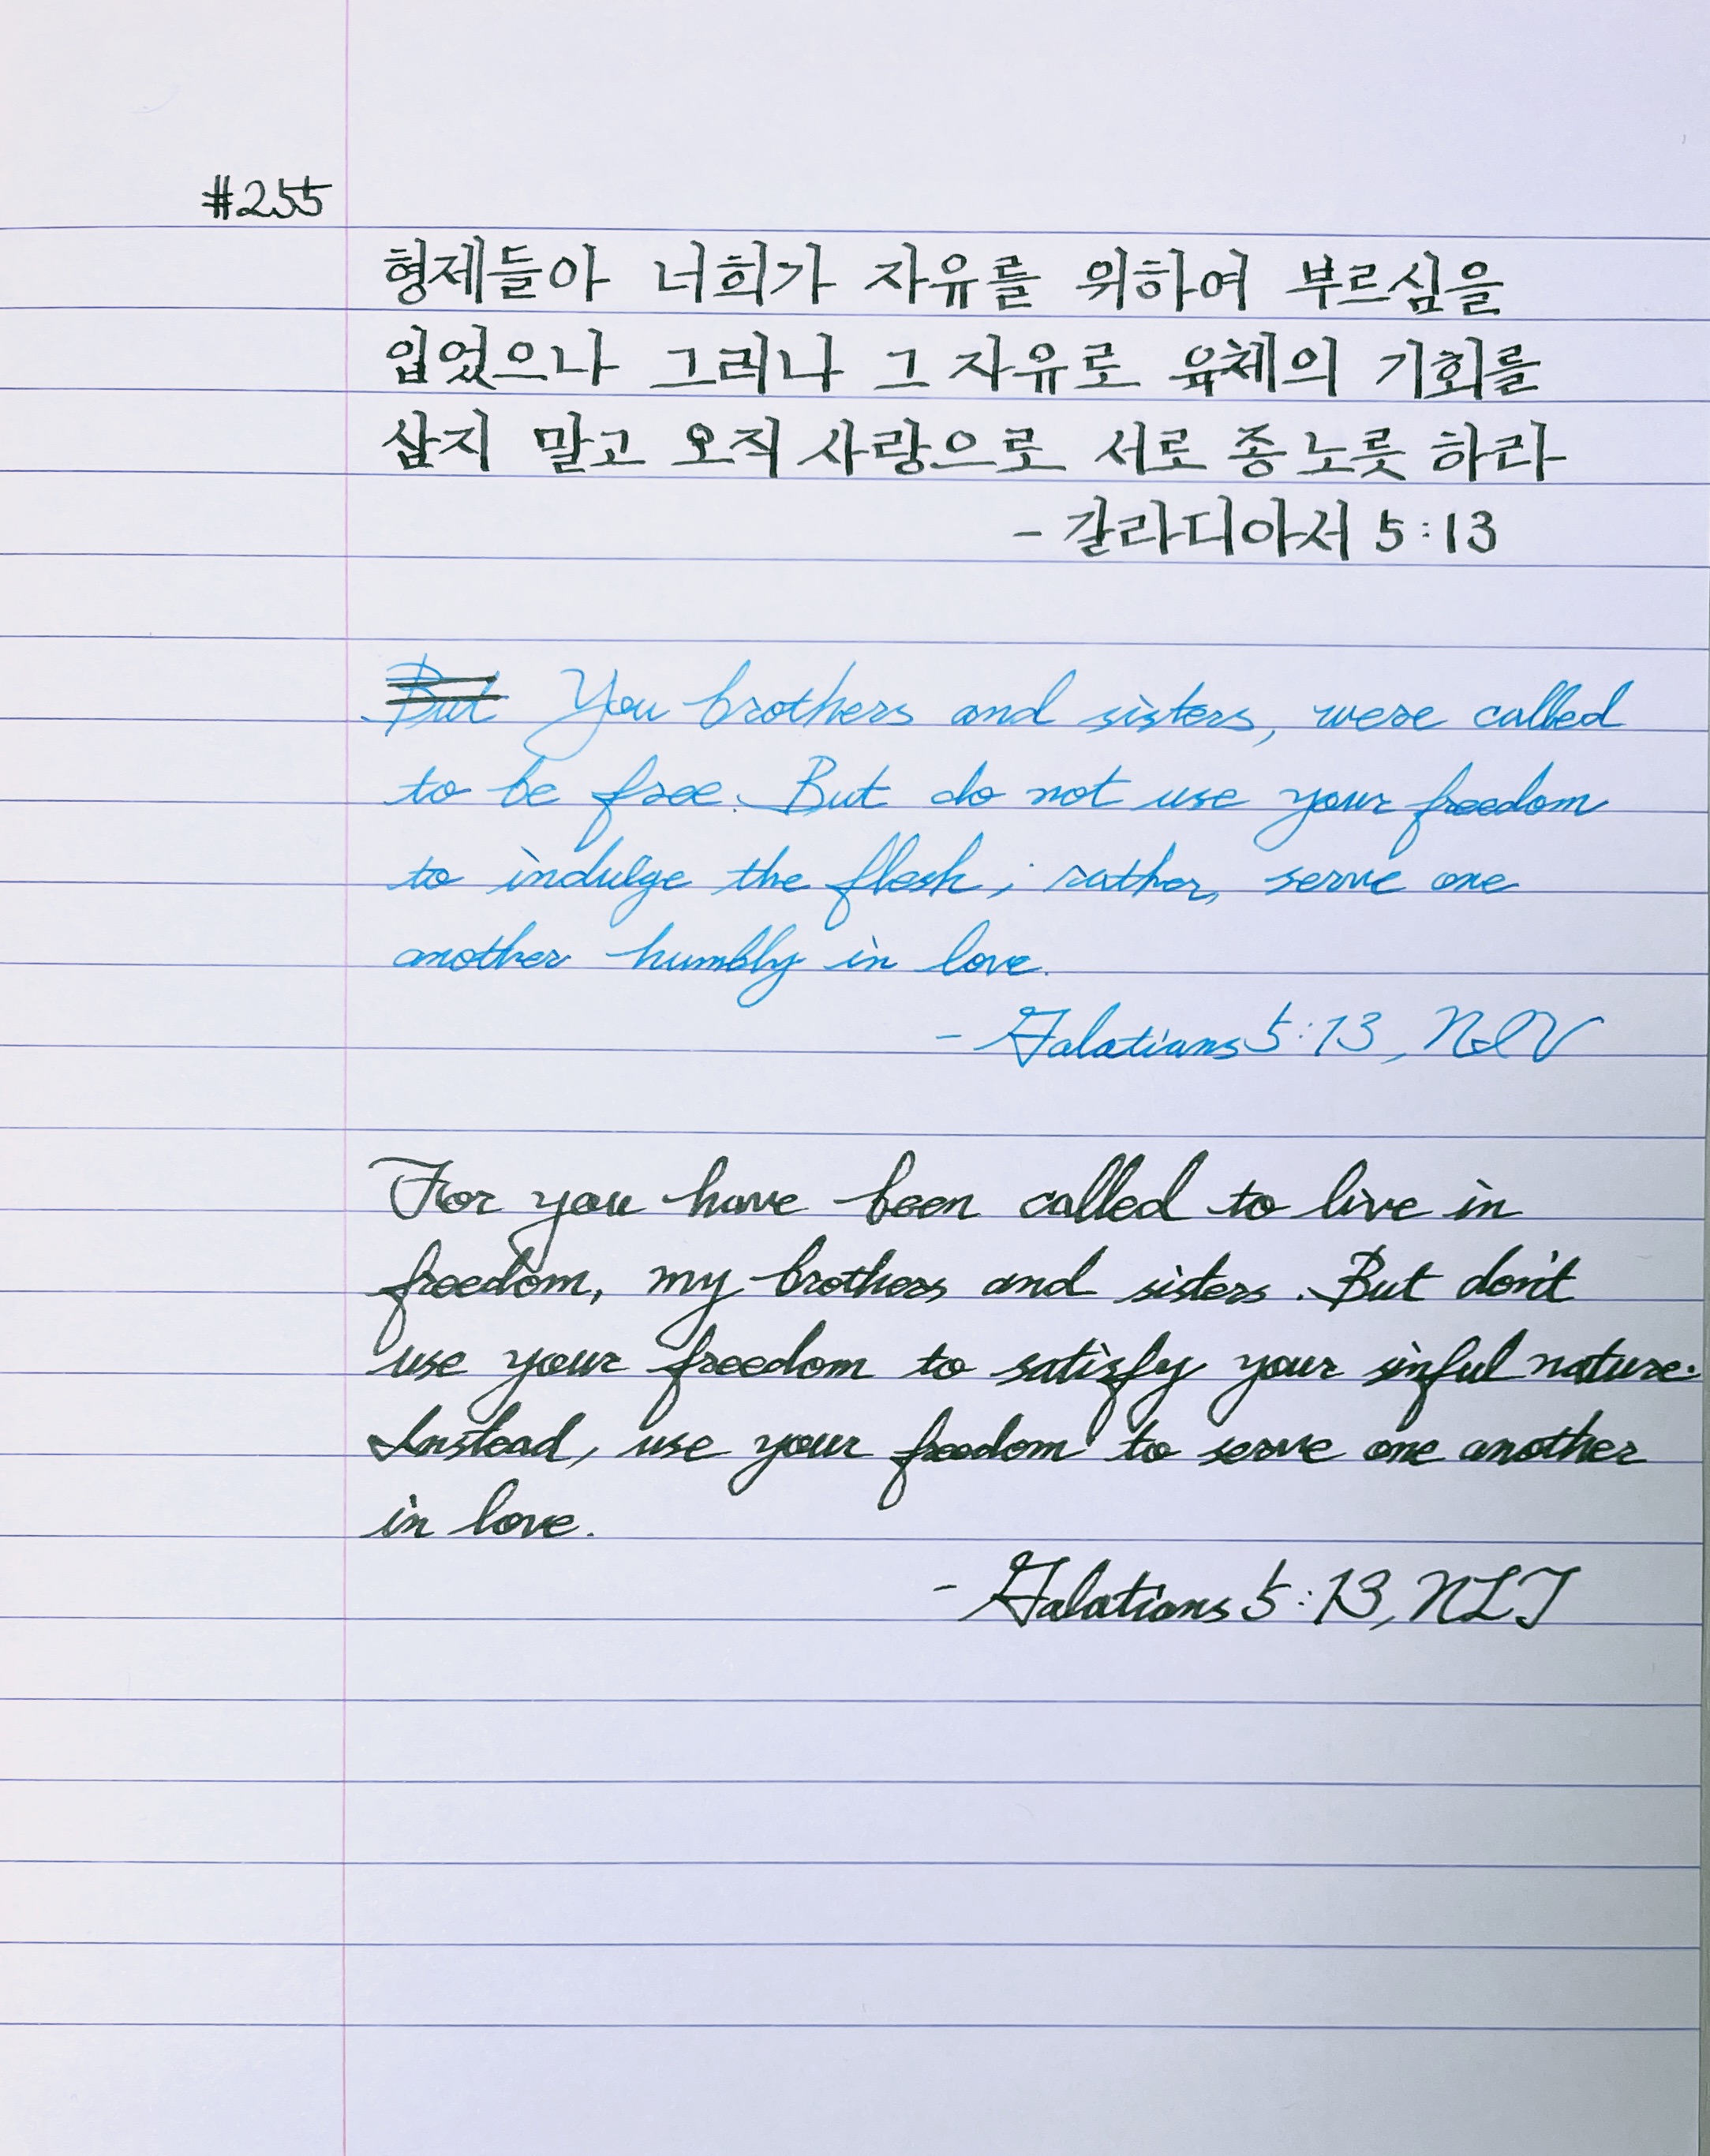 #255
형제들아 너희가 자유를 위하여 부르심을
입었으나 그러나 그 자유로 육체의 기회를
삼지 말고 오직 사랑으로 서로 종 노릇 하라
- 갈라디아서 5:13
But You brothers and sisters, were called
to be free. But do not use your freedom
to indulge the flesh; rather, serve one
another humbly in love.
- Galatians 5:13, NIV
For you have been called to live in
freedom, my brothers and sisters. But don't
use your freedom to satisfy your sinful nature.
Instead, use your freedom to serve one another
in love.
- Galatians 5:13, NLT